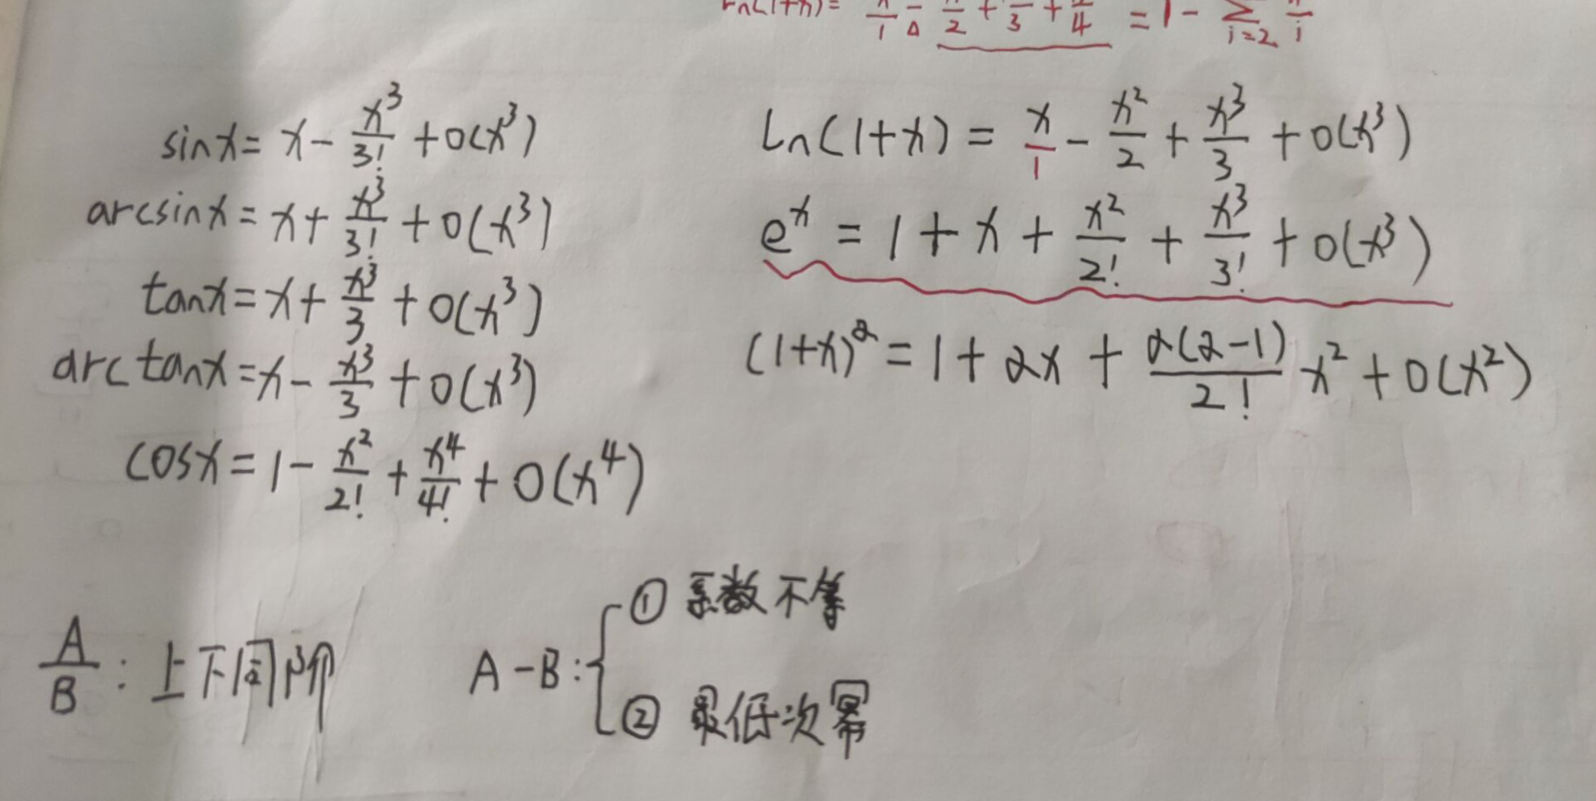 ln(1+x) = x/1 - x/2 + /3 + /4 = 1 - ∑ i=2 /i
sinx = x - x³/3! + o(x³)
arcsinx = x + x³/3! + o(x³)
tanx = x + x³/3 + o(x³)
arctanx = x - x³/3 + o(x³)
cosx = 1 - x²/2! + x⁴/4! + o(x⁴)
ln(1+x) = x/1 - x²/2 + x³/3 + o(x³)
eˣ = 1 + x + x²/2! + x³/3! + o(x³)
(1+x)ᵅ = 1 + αx + α(α-1)/2! x² + o(x²)
A/B : 上下同阶
A-B : { ① 系数不等
② 最低次幂